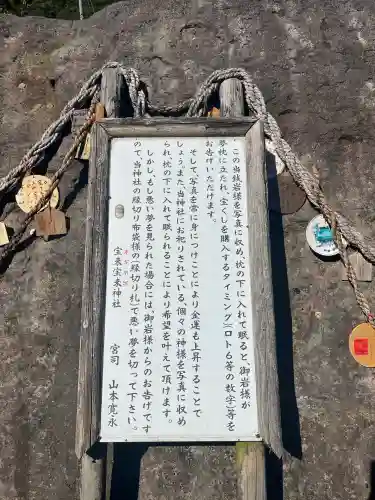 この当鉄岩様を写真に収め、枕の下に入れて眠ると、御岩様が
夢枕に立たれ、宝くじを購入するタイミング(ロト６等の数字)等を
お告げいただけます。
そして、写真を身につけることにより金運も上昇することで
しょう。また、当神社にお祀りされている、個々の神様を写真に収め
られ枕の下に入れて眠られることにより希望を叶えて頂けます。
しかし、もし悪い夢を見られた場合には、御岩様からのお告げです
ので、当神社の縁切り布袋様の(縁切り札)で悪い夢を切って下さい。
宝来宝来神社
宮司 山本寛永